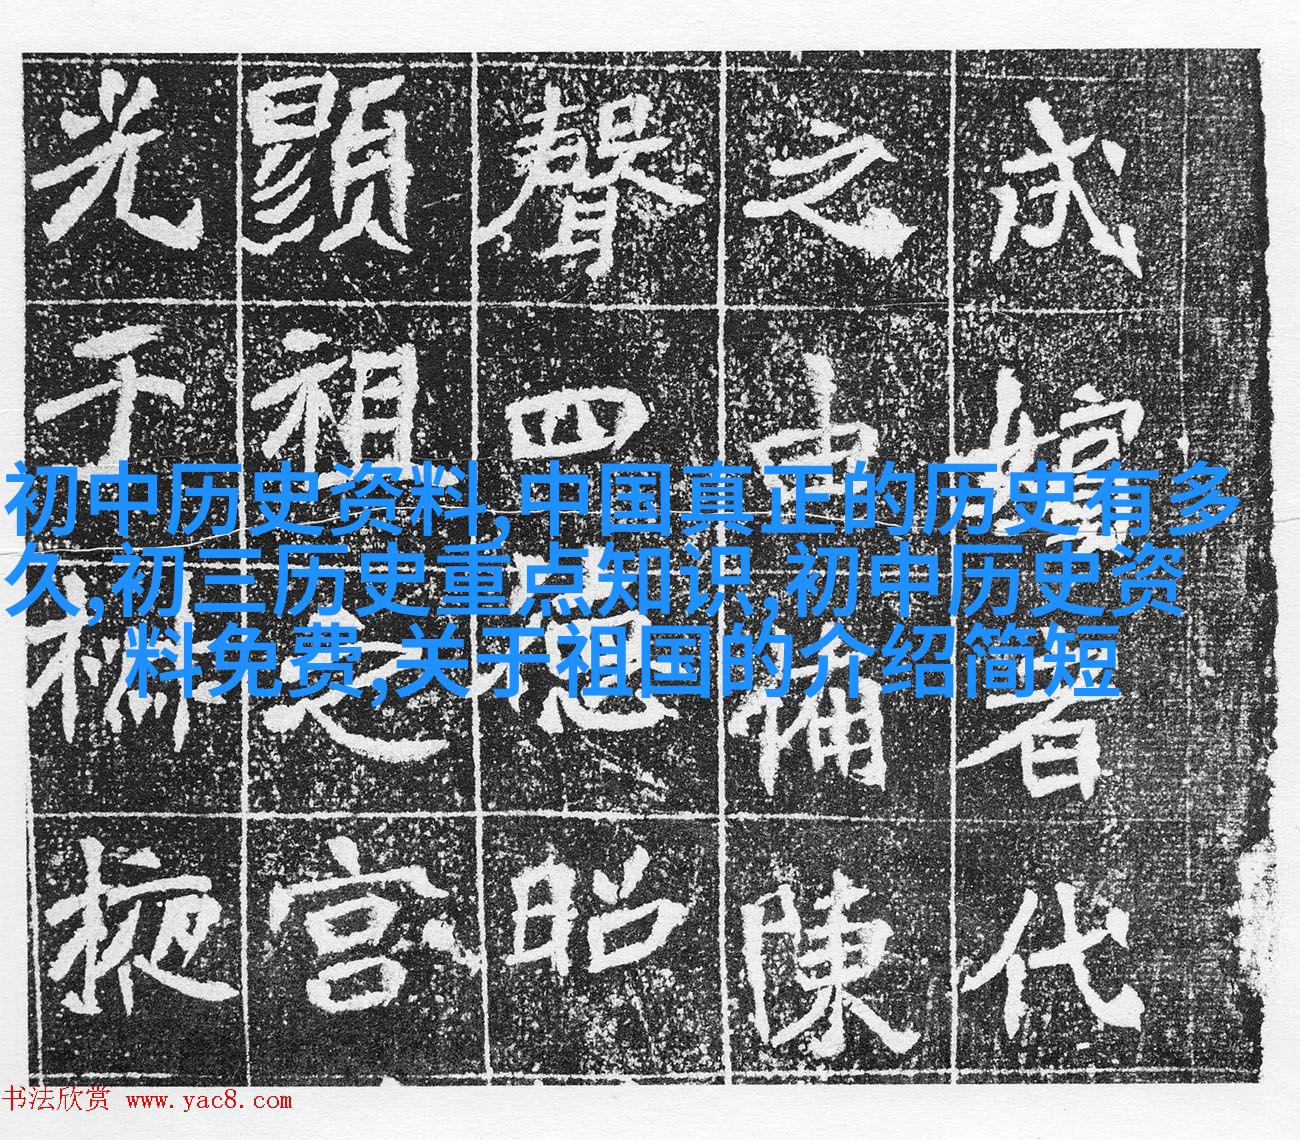 初中历史资料,中国真正的历史有多
久,初三历史重点知识,初中历史资
料免费,关于祖国的介绍简短
代
之申備陳
聲四德昭
顯祖之宮
光于掖
书法欣赏 www.yac8.com